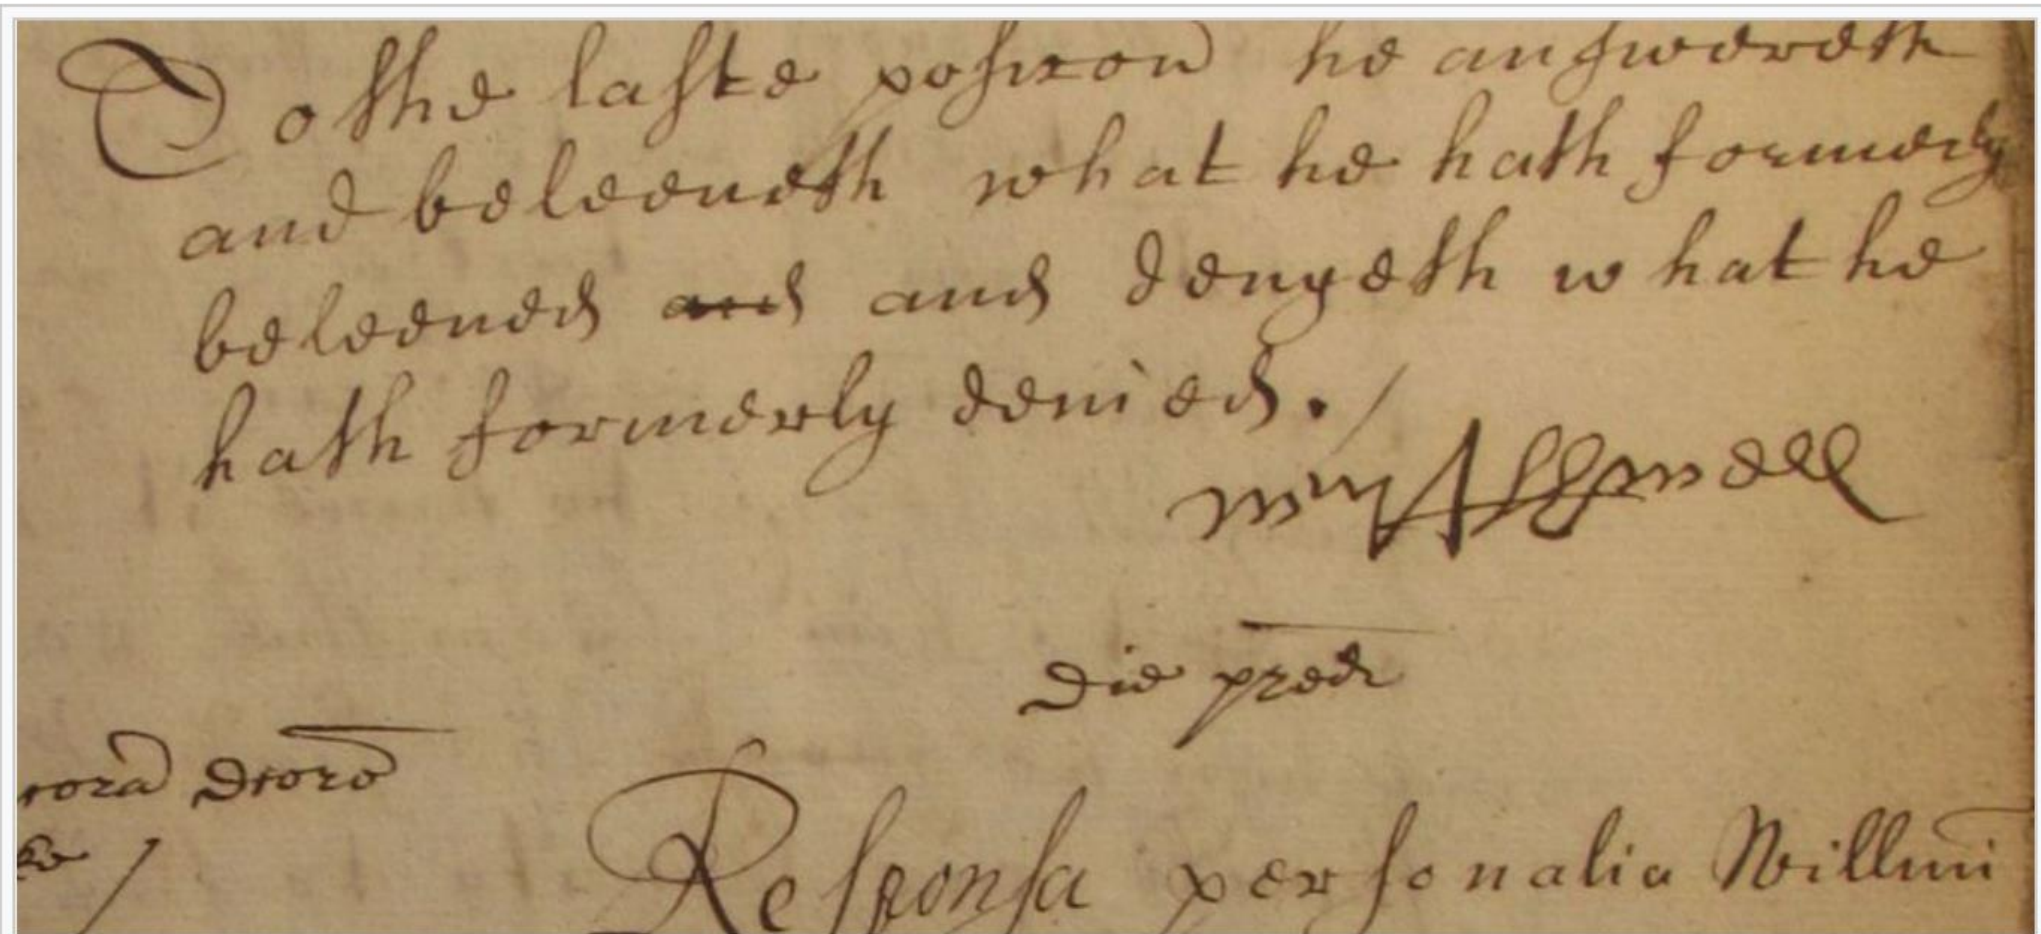 To the laste posicon he answereth
and beleeueth what he hath formerly
beleeued and and denyeth what he
hath formerly denied ./
Wm Ashwell
Die pred
cora dcore
Responsa personalia Willmi